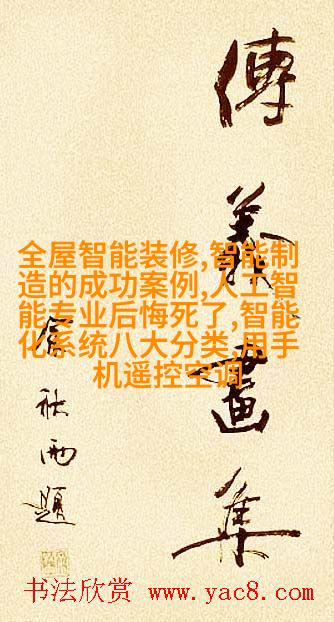 畫集
題
全屋智能装修,智能制
造的成功案例,人工智
能专业后悔死了,智能
化系统八大分类,用手
机遥控空调
书法欣赏 www.yac8.com